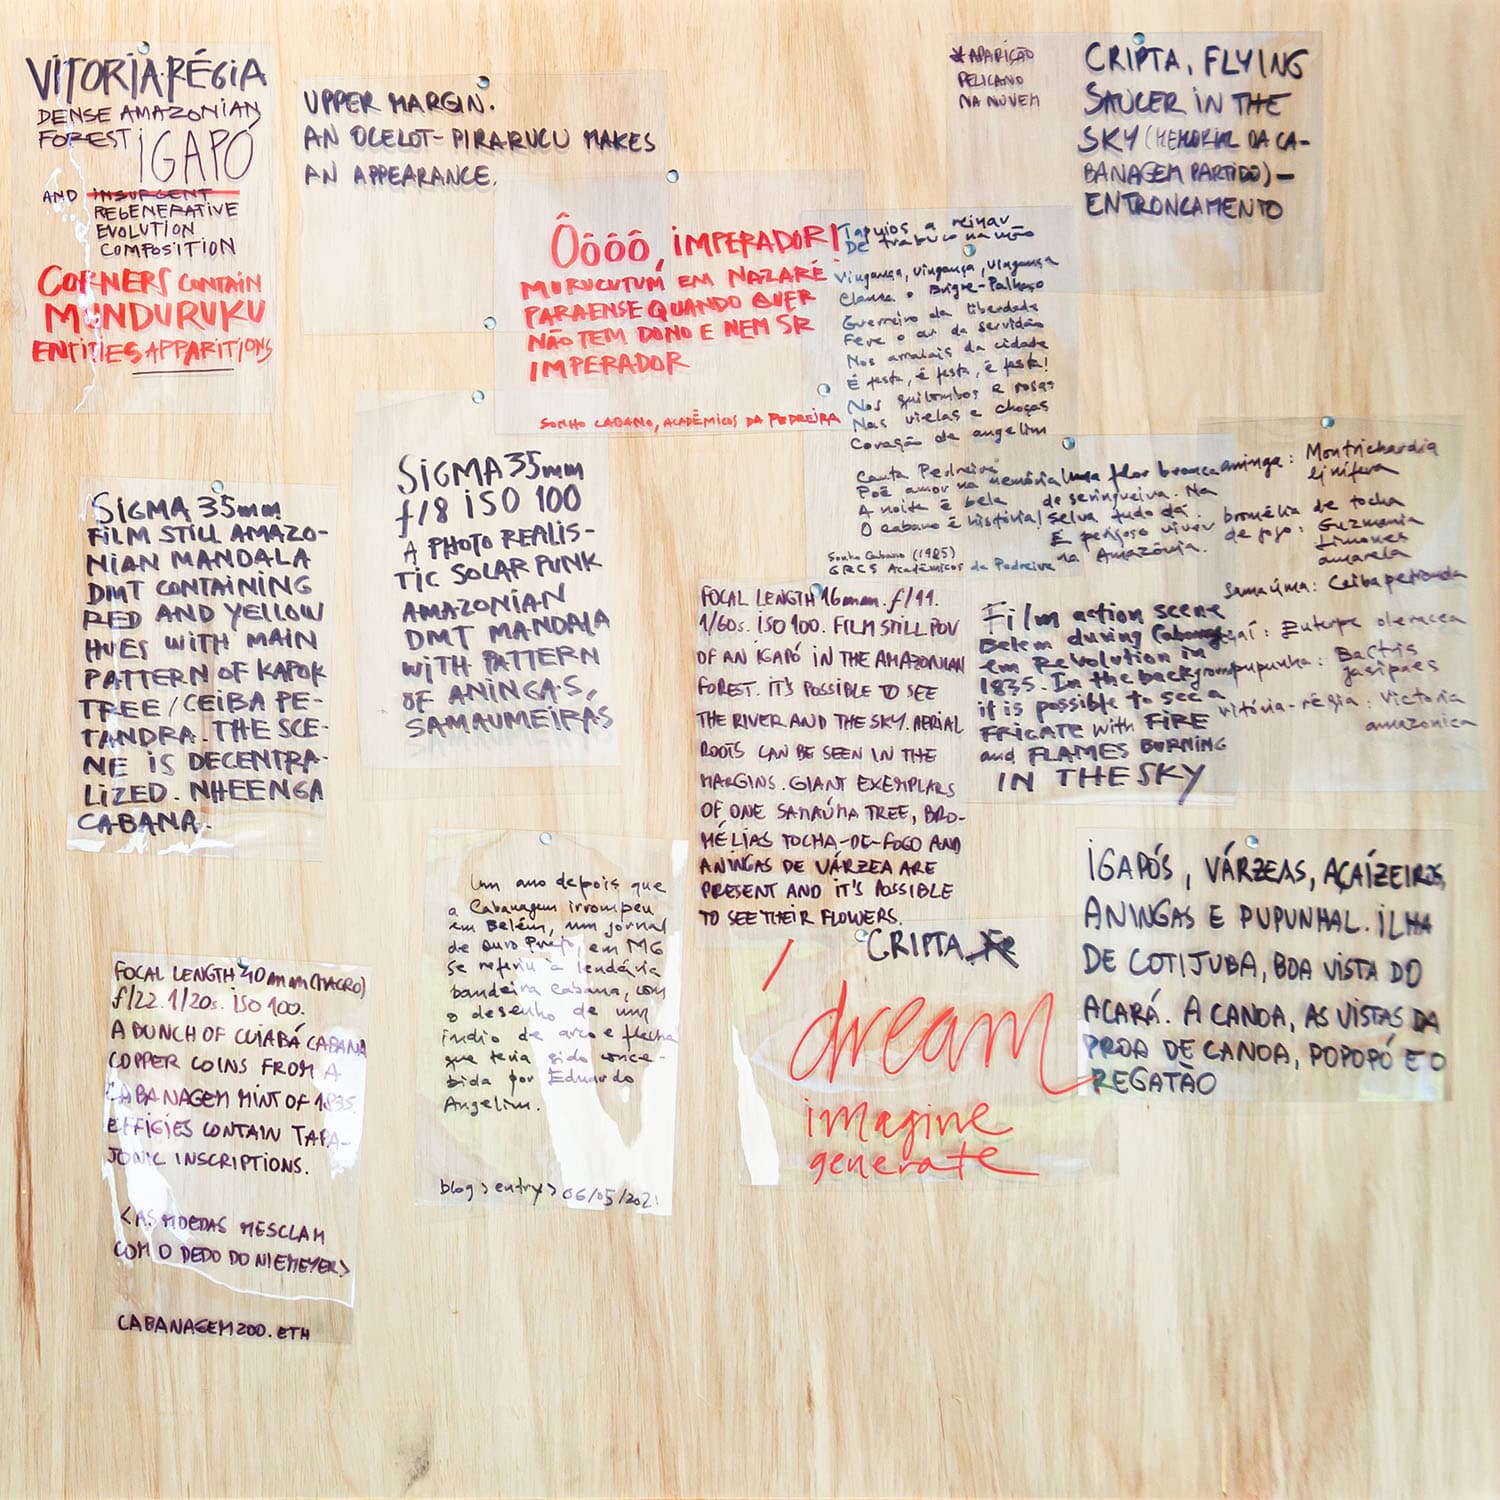 VITORIA-RÉGIA
DENSE AMAZONIAN
FOREST IGAPÓ
AND INSURGENT
REGENERATIVE
EVOLUTION
COMPOSITION
CORNERS CONTAIN
MUNDURUKU
ENTITIES APPARITIONS
UPPER MARGIN.
AN OCELOT-PIRARUCU MAKES
AN APPEARANCE.
*APARIÇÃO
PELICANO
NA NUVEM
CRIPTA, FLYING
SAUCER IN THE
SKY (MEMORIAL DA CA-
BANAGEM PARTIDO) —
ENTRONCAMENTO
Ôôôô, IMPERADOR!
MURUCUTUM EM NAZARÉ
PARAENSE QUANDO QUER
NÃO TEM DONO E NEM SR
IMPERADOR
SONHO CABANO, ACADÊMICOS DA PEDREIRA
Tapuios a reinar
De trabuco na mão
Vingança, vingança, vingança
Clama o Brigre-Palhaço
Guerreiro da liberdade
Feve o ar da servidão
Nos arraiais da cidade
É festa, é festa, é festa!
Nos quilombos e rosas
Nas vielas e choças
Coração de angelim
Canta Pedreira
Põe amor na memória
A noite é bela
O cabano é história!
Sonho Cabano (1985)
GRCS Acadêmicos da Pedreira
Uma flor branca
de seringueira. Na
selva tudo dá.
É perigoso viver
na Amazônia.
aninga: Montrichardia
linifera
bromélia de tocha
de fogo: Guzmania
limones
amarela
Samaúma: Ceiba petranda
açaí: Euterpe oleracea
pupunha: Bactris
gasipaes
vitória-régia: Victoria
amazonica
SIGMA 35mm
FILM STILL AMAZO-
NIAN MANDALA
DMT CONTAINING
RED AND YELLOW
HUES WITH MAIN
PATTERN OF KAPOK
TREE/CEIBA PE-
TANDRA. THE SCE-
NE IS DECENTRA-
LIZED. NHEENGA
CABANA.
SIGMA 35mm
f/8 ISO 100
A PHOTO REALIS-
TIC SOLAR PUNK
AMAZONIAN
DMT MANDALA
WITH PATTERN
OF ANINGAS,
SAMAUMEIRAS
FOCAL LENGTH 16mm. f/11.
1/60s. ISO 100. FILM STILL POV
OF AN IGAPÓ IN THE AMAZONIAN
FOREST. IT'S POSSIBLE TO SEE
THE RIVER AND THE SKY. AERIAL
ROOTS CAN BE SEEN IN THE
MARGINS. GIANT EXEMPLARS
OF ONE SAMAÚMA TREE, BRO-
MÉLIAS TOCHA-DE-FOGO AND
ANINGAS DE VÁRZEA ARE
PRESENT AND IT'S POSSIBLE
TO SEE THEIR FLOWERS.
Film action scene
Belem during Cabanag
em Revolution in
1835. In the background
it is possible to see a
FRIGATE with FIRE
and FLAMES BURNING
IN THE SKY
FOCAL LENGTH 40mm (MACRO)
f/22. 1/20s. ISO 100.
A BUNCH OF CUIABÁ CABANA
COPPER COINS FROM A
CABANAGEM MINT OF 1835.
EFFIGIES CONTAIN TAPA-
JONIC INSCRIPTIONS.
<AS MOEDAS MESCLAM
COM O DEDO DO NIEMEYER>
CABANAGEM200.ETH
Um ano depois que
a Cabanagem irrompeu
em Belém, um jornal
de Ouro Preto, em MG
se referiu à lendária
bandeira Cabana, com
o desenho de um
índio de arco e flecha
que teria sido conce-
bida por Eduardo
Angelim.
blog > entry > 06/05/202
CRIPTA
/dream
imagine
generate
IGAPÓS, VÁRZEAS, AÇAÍZEIROS,
ANINGAS E PUPUNHAL. ILHA
DE COTIJUBA, BOA VISTA DO
ACARÁ. A CANOA, AS VISTAS DA
PROA DE CANOA, POPOPÓ E O
REGATÃO